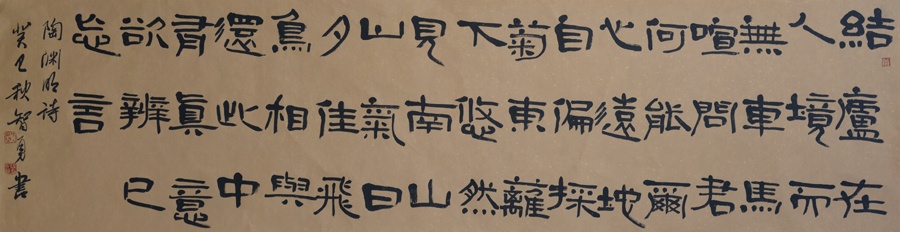 結廬在
人境而
無車馬
喧問君
何能爾
心遠地
自偏採
菊東籬
下悠然
見南山
山氣日
夕佳飛
鳥相與
還此中
有眞意
欲辨已
忘言
陶渊明詩
癸巳秋智勇書